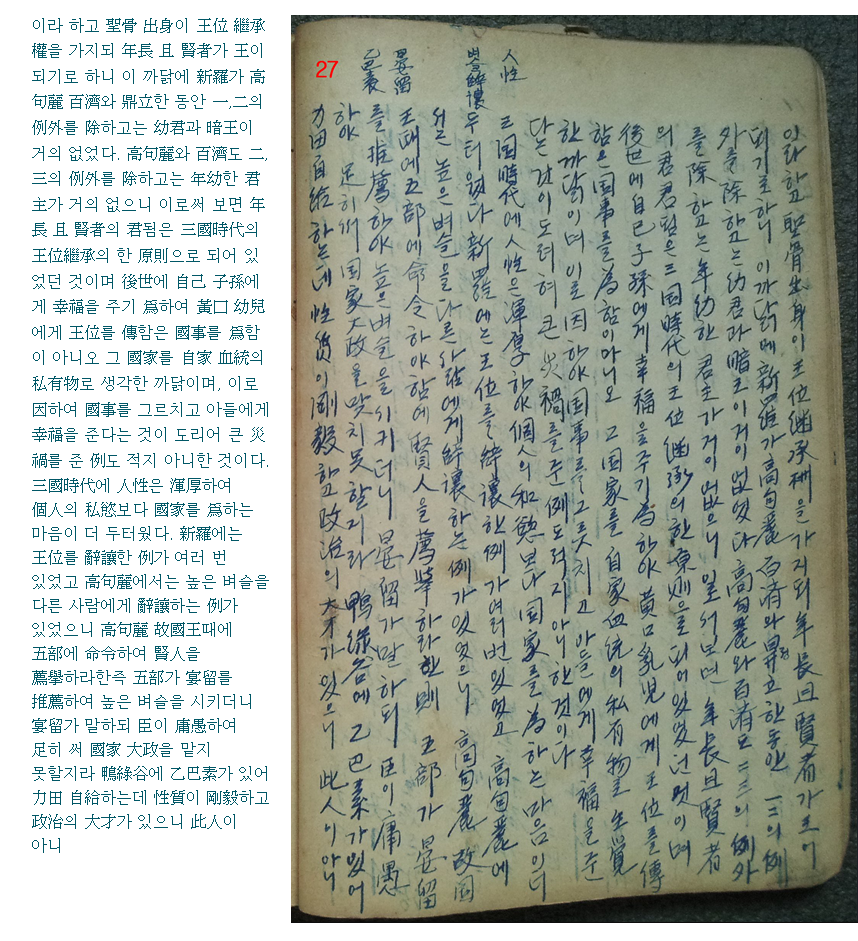 이라 하고 聖骨 出身이 王位 繼承
權을 가지되 年長 且 賢者가 王이
되기로 하니 이 까닭에 新羅가 高
句麗 百濟와 鼎立한 동안 一,二의
例外를 除하고는 幼君과 暗王이
거의 없었다. 高句麗와 百濟도 二,
三의 例外를 除하고는 年幼한 君
主가 거의 없으니 이로써 보면 年
長 且 賢者의 君됨은 三國時代의
王位繼承의 한 原則으로 되어 있
었던 것이며 後世에 自己 子孫에
게 幸福을 주기 爲하여 黃口 幼兒
에게 王位를 傳함은 國事를 爲함
이 아니오 그 國家를 自家 血統의
私有物로 생각한 까닭이며, 이로
因하여 國事를 그르치고 아들에게
幸福을 준다는 것이 도리어 큰 災
禍를 준 例도 적지 아니한 것이다.
三國時代에 人性은 渾厚하여
個人의 私慾보다 國家를 爲하는
마음이 더 두터웠다. 新羅에는
王位를 辭讓한 例가 여러 번
있었고 高句麗에서는 높은 벼슬을
다른 사람에게 辭讓하는 例가
있었으니 高句麗 故國王때에
五部에 命令하여 賢人을
薦擧하라한즉 五部가 宴留를
推薦하여 높은 벼슬을 시키더니
宴留가 말하되 臣이 庸愚하여
足히 써 國家 大政을 맡지
못할지라 鴨綠谷에 乙巴素가 있어
力田 自給하는데 性質이 剛毅하고
政治의 大才가 있으니 此人이
아니
27
이라 하고 聖骨出身이 王位継承権을 가지되 年長且賢者가王이
되기로하니 이까닭에 新羅가 高句麗 百済와 鼎立한동안 一二의 例
外를 除하고는 幼君과 暗王이거이 없었다 高句麗와百済도 二三의 例外
를除하고는 年幼한 君主가거이없으니 일로써보면 年長且賢者
의 君君됨은 三国時代의 王位継承의한原則으로되어있었던것이며
後世에自己子孫에게 幸福을주기為하야 黃口乳児에게 王位를傳
함은国事를為함이아니오 그国家를 自家血統의 私有物로 生覺
한까닭이며 이로因하야国事를그릇치고 아들에게 幸福을준
다는것이도려혀큰 災禍를준例도적지아니한것이다
人性
三国時代에人性은渾厚하야個人의私慾보다国家를為하는마음이더
벼슬辭讓
두터웠다 新羅에는王位를辭讓한例가여러번있었고 高句麗에
서는 높은벼슬을다른사람에게辭讓하는例가있었으니 高句麗故国
王때에五部에命令하야함에賢人을薦挙하라한則 五部가 晏留
晏留
를推薦하야높은벼슬을시키더니 晏留가말하되 臣이庸愚
乙巴素
하야 足히써国家大政을맞치못할지라 鴨綠谷에乙巴素가있어
力田自給하는데 性質이剛毅하고政治의大才가있으니 此人이아니